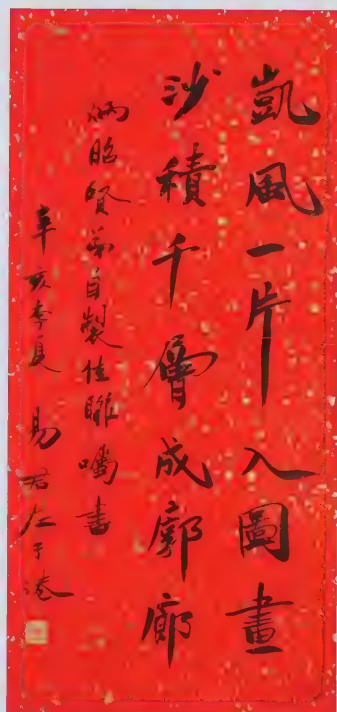 凱風一片入圖畫
沙積千層成廓廊
炳昭賢弟自製佳聯囑書
辛亥季夏 易君左于港